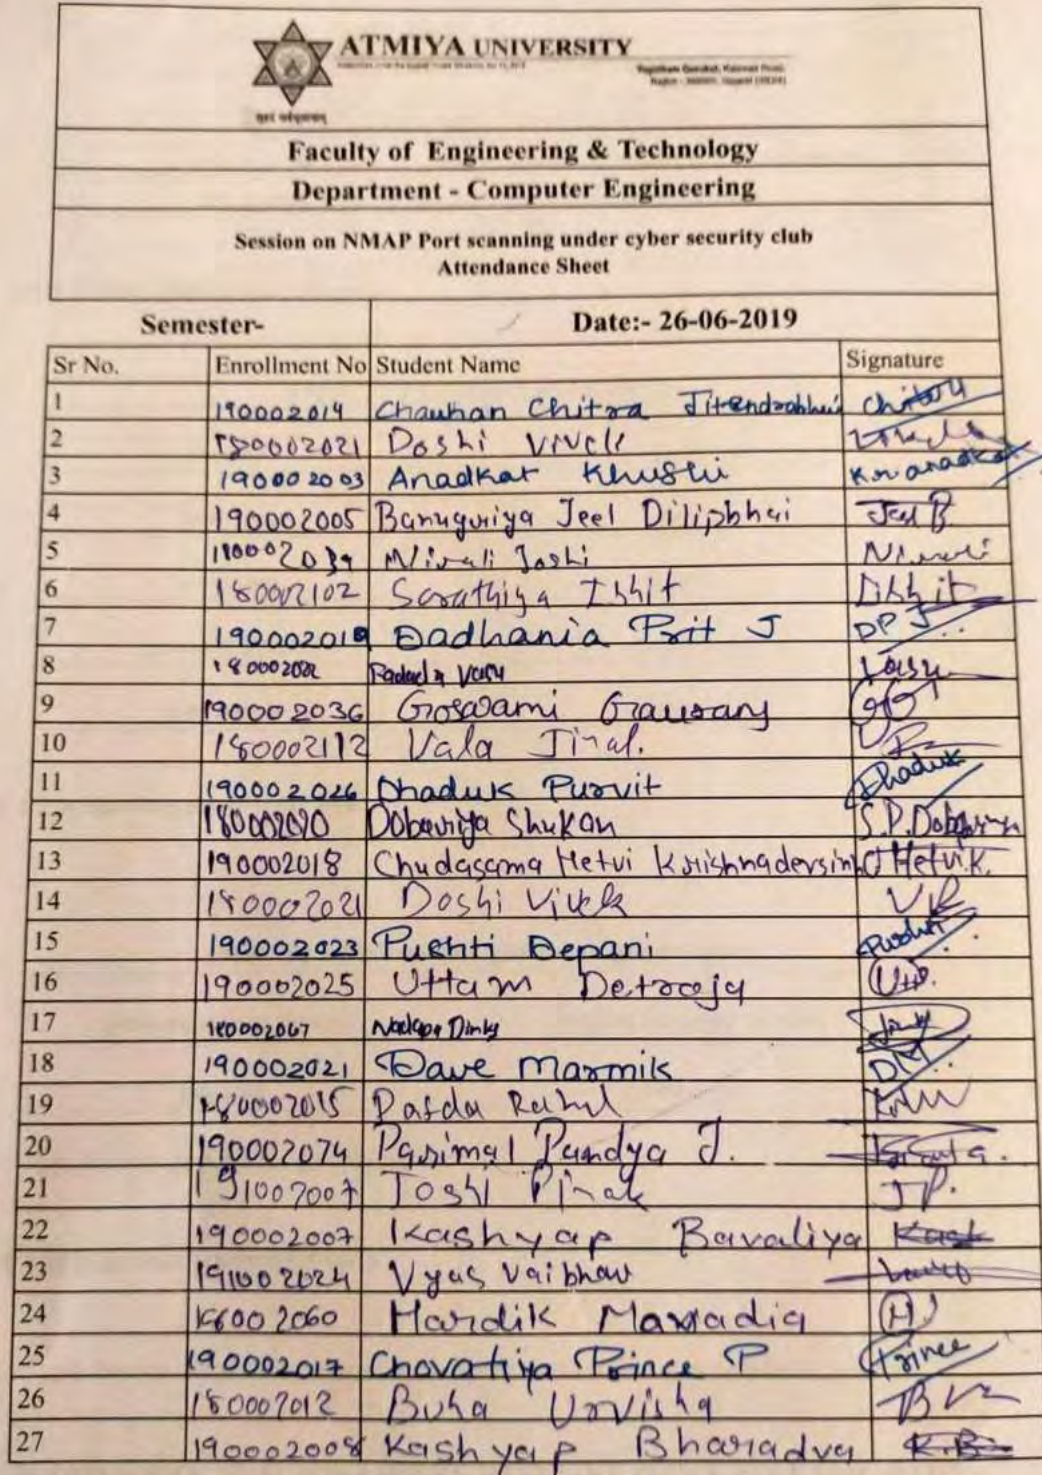 ATMIYA UNIVERSITY
Faculty of Engineering & Technology
Department - Computer Engineering
Session on NMAP Port scanning under cyber security club
Attendance Sheet
Semester- Date:- 26-06-2019
Sr No. Enrollment No Student Name Signature
1 190002014 Chauhan Chitra Jitendrabhai
2 180002021 Doshi Vivek
3 190002003 Anadkat Khushi Kh anadkat
4 190002005 Banugariya Jeel Dilipbhai Jeel B
5 Joshi
6 180002102 Sorathiya Ishit Ishit
7 190002019 Dadhania Prit J DP J
8 Vasu Vasu
9 190002036 Goswami Gaurang GG
10 180002112 Vala Jinal.
11 190002026 Dhaduk Purvit Dhaduk
12 180002020 Dobariya Shukan S.P.Dobariya
13 190002018 Chudasama Hetvi Krishnadevsinh Hetvi.K.
14 180002021 Doshi Vivek
15 190002023 Pushti Depani Pushti
16 190002025 Uttam Detroja
17 180002067
18 190002021 Dave Marmik DM
19 180002015 Dafda Rahul
20 190002074 Parimal Pandya J.
21 191002007 Joshi Pinak JP.
22 190002007 Kashyap Bavaliya Kash
23 191002024 Vyas Vaibhav
24 Hardik Maradia H
25 190002017 Chovatiya Prince P Prince
26 180002012 Buha Urvisha
27 190002008 Kashyap Bharadva K.B